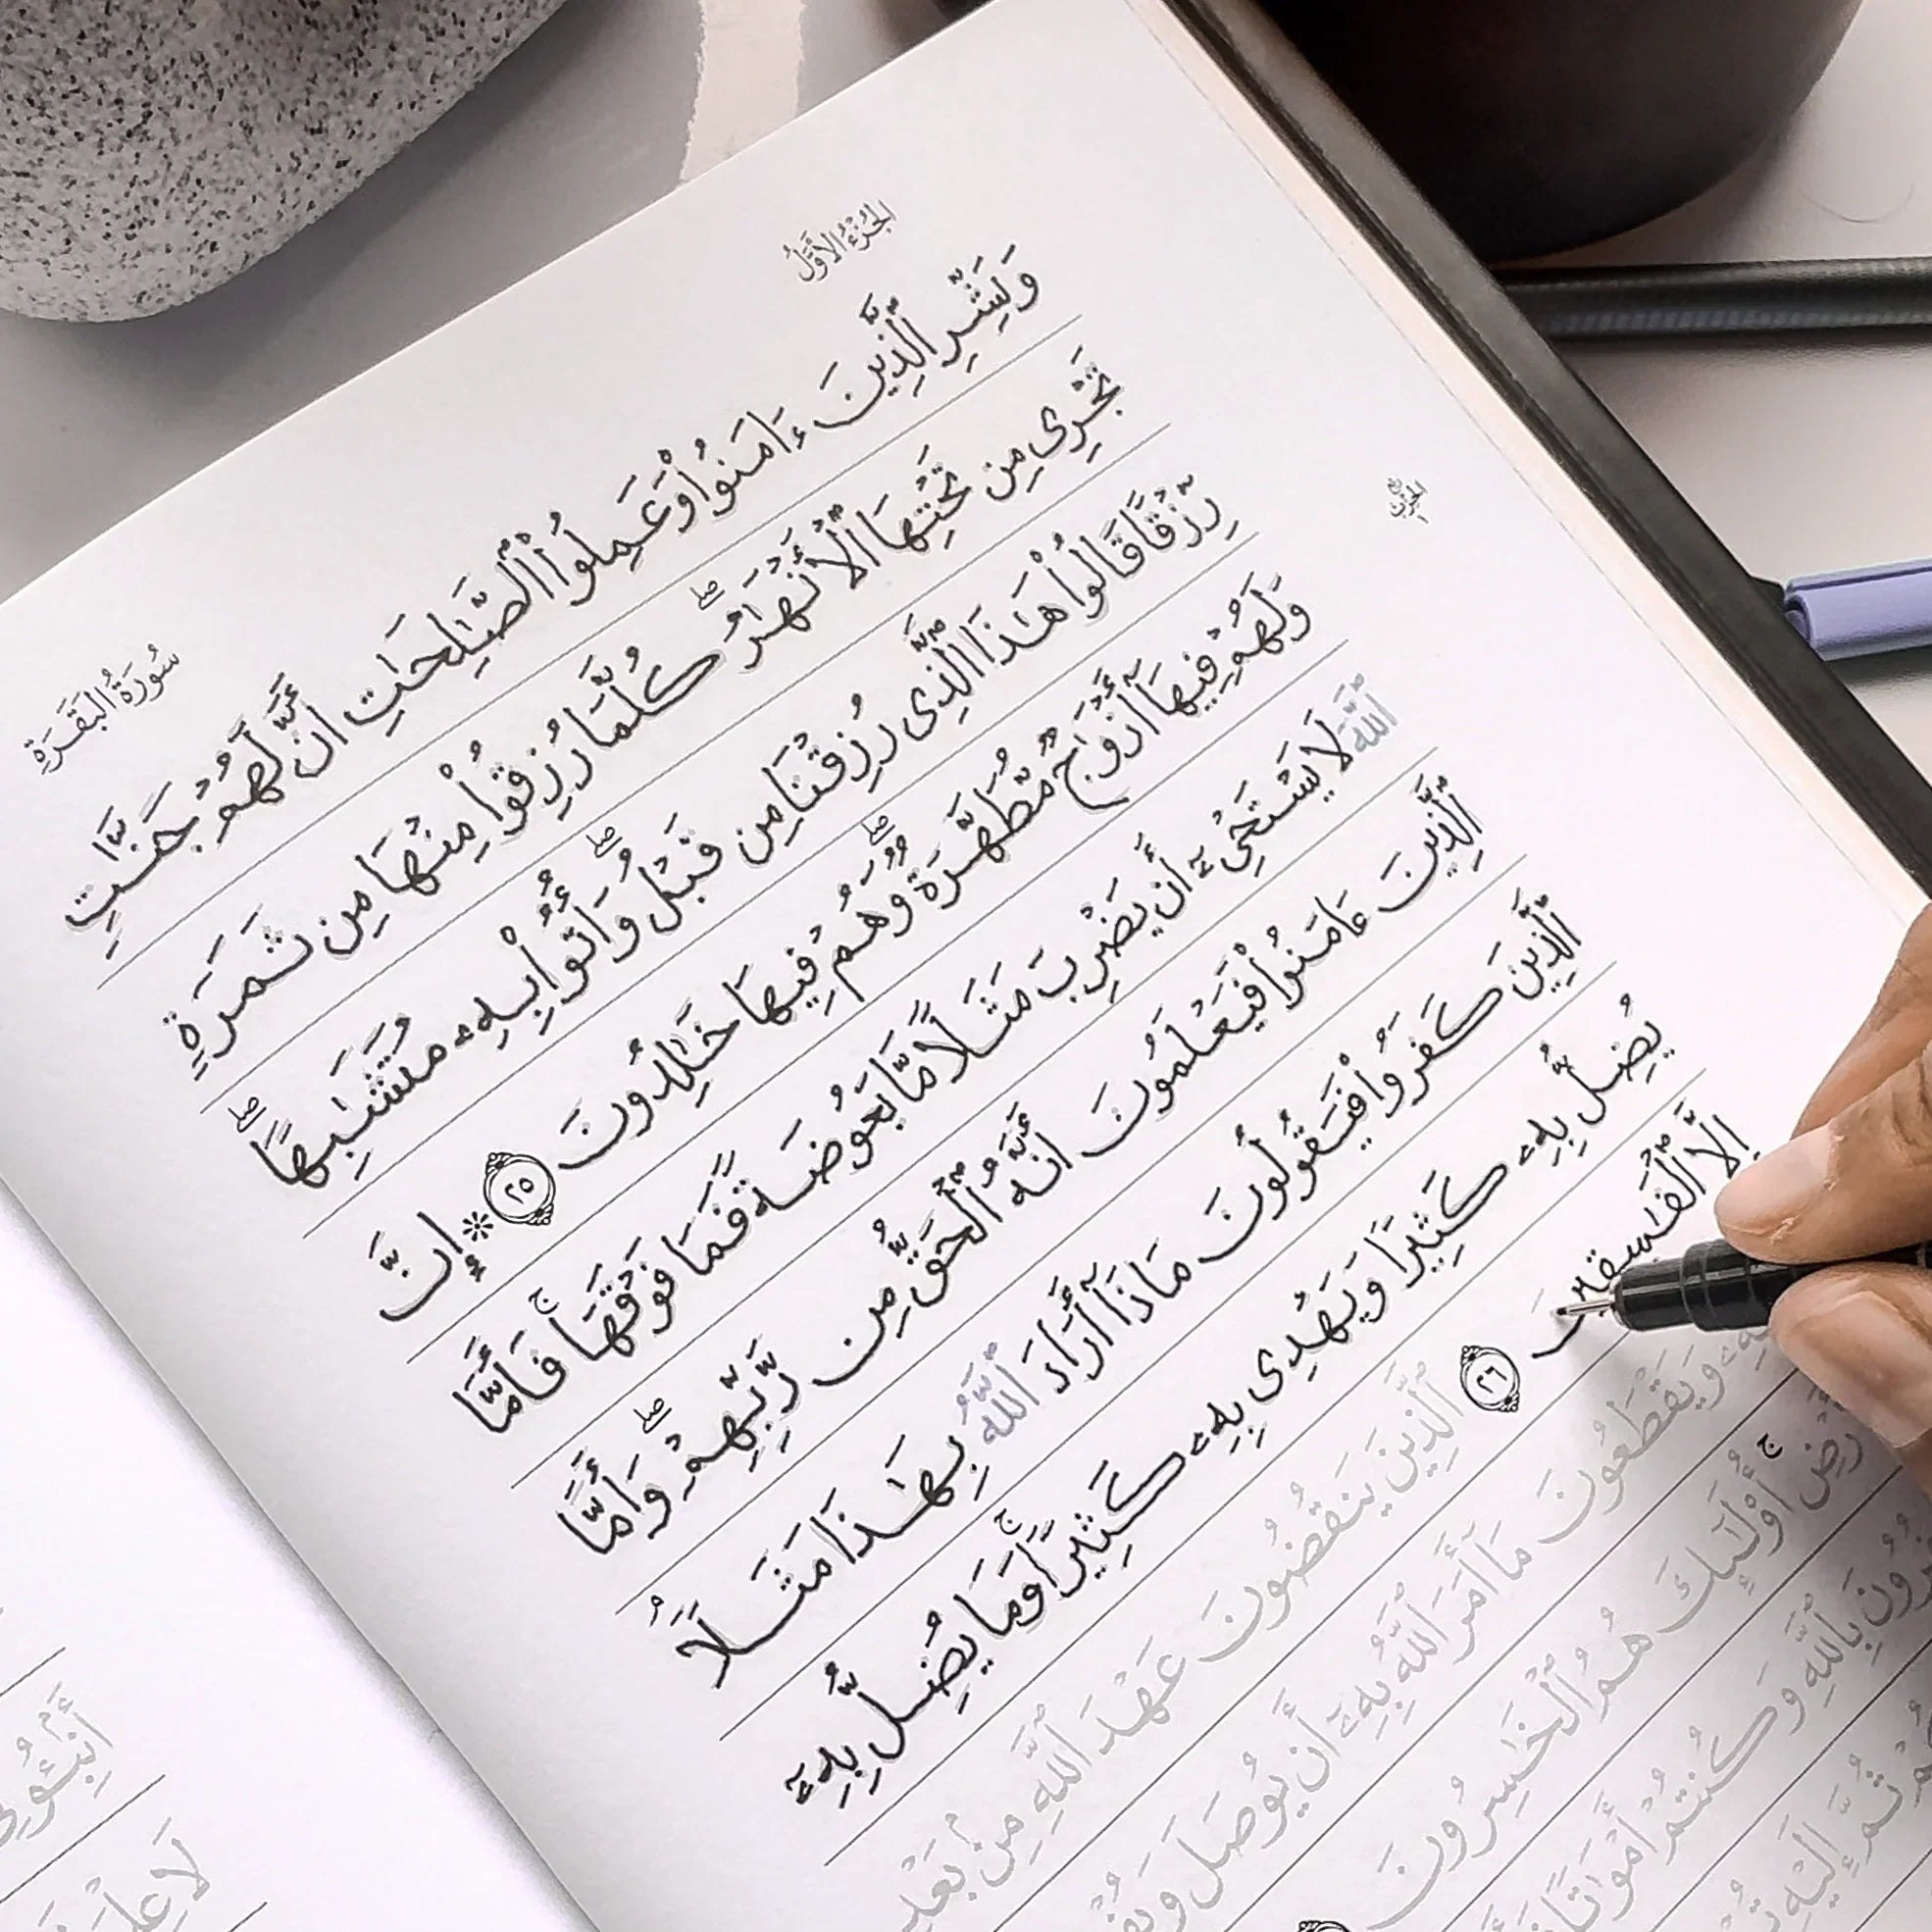 الجُزْءُ الأَوَّلُ
سُورَةُ البَقَرَةِ
الحِزْبُ ١
وَبَشِّرِ ٱلَّذِينَ ءَامَنُوا۟ وَعَمِلُوا۟ ٱلصَّـٰلِحَـٰتِ أَنَّ لَهُمْ جَنَّـٰتٍ
تَجْرِى مِن تَحْتِهَا ٱلْأَنْهَـٰرُ ۖ كُلَّمَا رُزِقُوا۟ مِنْهَا مِن ثَمَرَةٍ
رِّزْقًا قَالُوا۟ هَـٰذَا ٱلَّذِى رُزِقْنَا مِن قَبْلُ ۖ وَأُتُوا۟ بِهِۦ مُتَشَـٰبِهًا ۖ
وَلَهُمْ فِيهَآ أَزْوَٰجٌ مُّطَهَّرَةٌ ۖ وَهُمْ فِيهَا خَـٰلِدُونَ ٢٥ * إِنَّ
ٱللَّهَ لَا يَسْتَحْىِۦٓ أَن يَضْرِبَ مَثَلًا مَّا بَعُوضَةً فَمَا فَوْقَهَا ۚ فَأَمَّا
ٱلَّذِينَ ءَامَنُوا۟ فَيَعْلَمُونَ أَنَّهُ ٱلْحَقُّ مِن رَّبِّهِمْ ۖ وَأَمَّا
ٱلَّذِينَ كَفَرُوا۟ فَيَقُولُونَ مَاذَآ أَرَادَ ٱللَّهُ بِهَـٰذَا مَثَلًا ۘ
يُضِلُّ بِهِۦ كَثِيرًا وَيَهْدِى بِهِۦ كَثِيرًا ۚ وَمَا يُضِلُّ بِهِۦٓ
إِلَّا ٱلْفَـٰسِقِينَ ٢٦ ٱلَّذِينَ يَنقُضُونَ عَهْدَ ٱللَّهِ مِنۢ بَعْدِ
وَيَقْطَعُونَ مَآ أَمَرَ ٱللَّهُ بِهِۦٓ أَن يُوصَلَ
أُو۟لَـٰٓئِكَ هُمُ ٱلْخَـٰسِرُونَ
بِٱللَّهِ وَكُنتُمْ أَمْوَٰتًا
ثُمَّ إِلَيْهِ
أَنۢبِـُٔونِى
لَا عِلْمَ